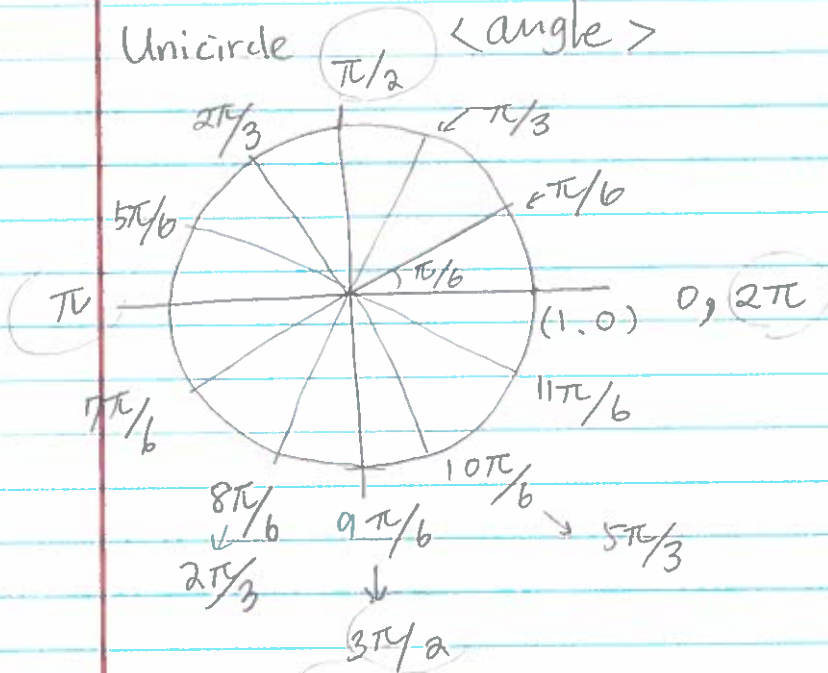 Unicircle <angle>
π/2
2π/3 π/3
5π/6 π/6
π/6
π 0, 2π
(1.0)
7π/6 11π/6
10π/6
8π/6 9π/6 5π/3
2π/3
3π/2